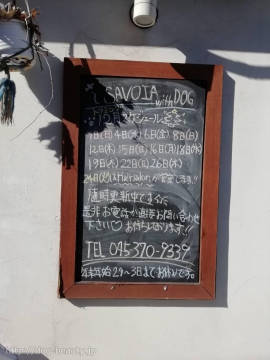 SAVOIA with DOG
スケジュール
4日(水) 6日(金) 8日(日)
12日(木) 15日(日) 16日(月) 18日(水)
19日(木) 22日(日) 26日(木)
Hairsalon が営業します!!
随時更新中です☆
是非お電話か直接お問い合わせ
下さい♡ お待ちしております!!
TEL 045-370-9339
年末年始 29〜3日までお休みです。